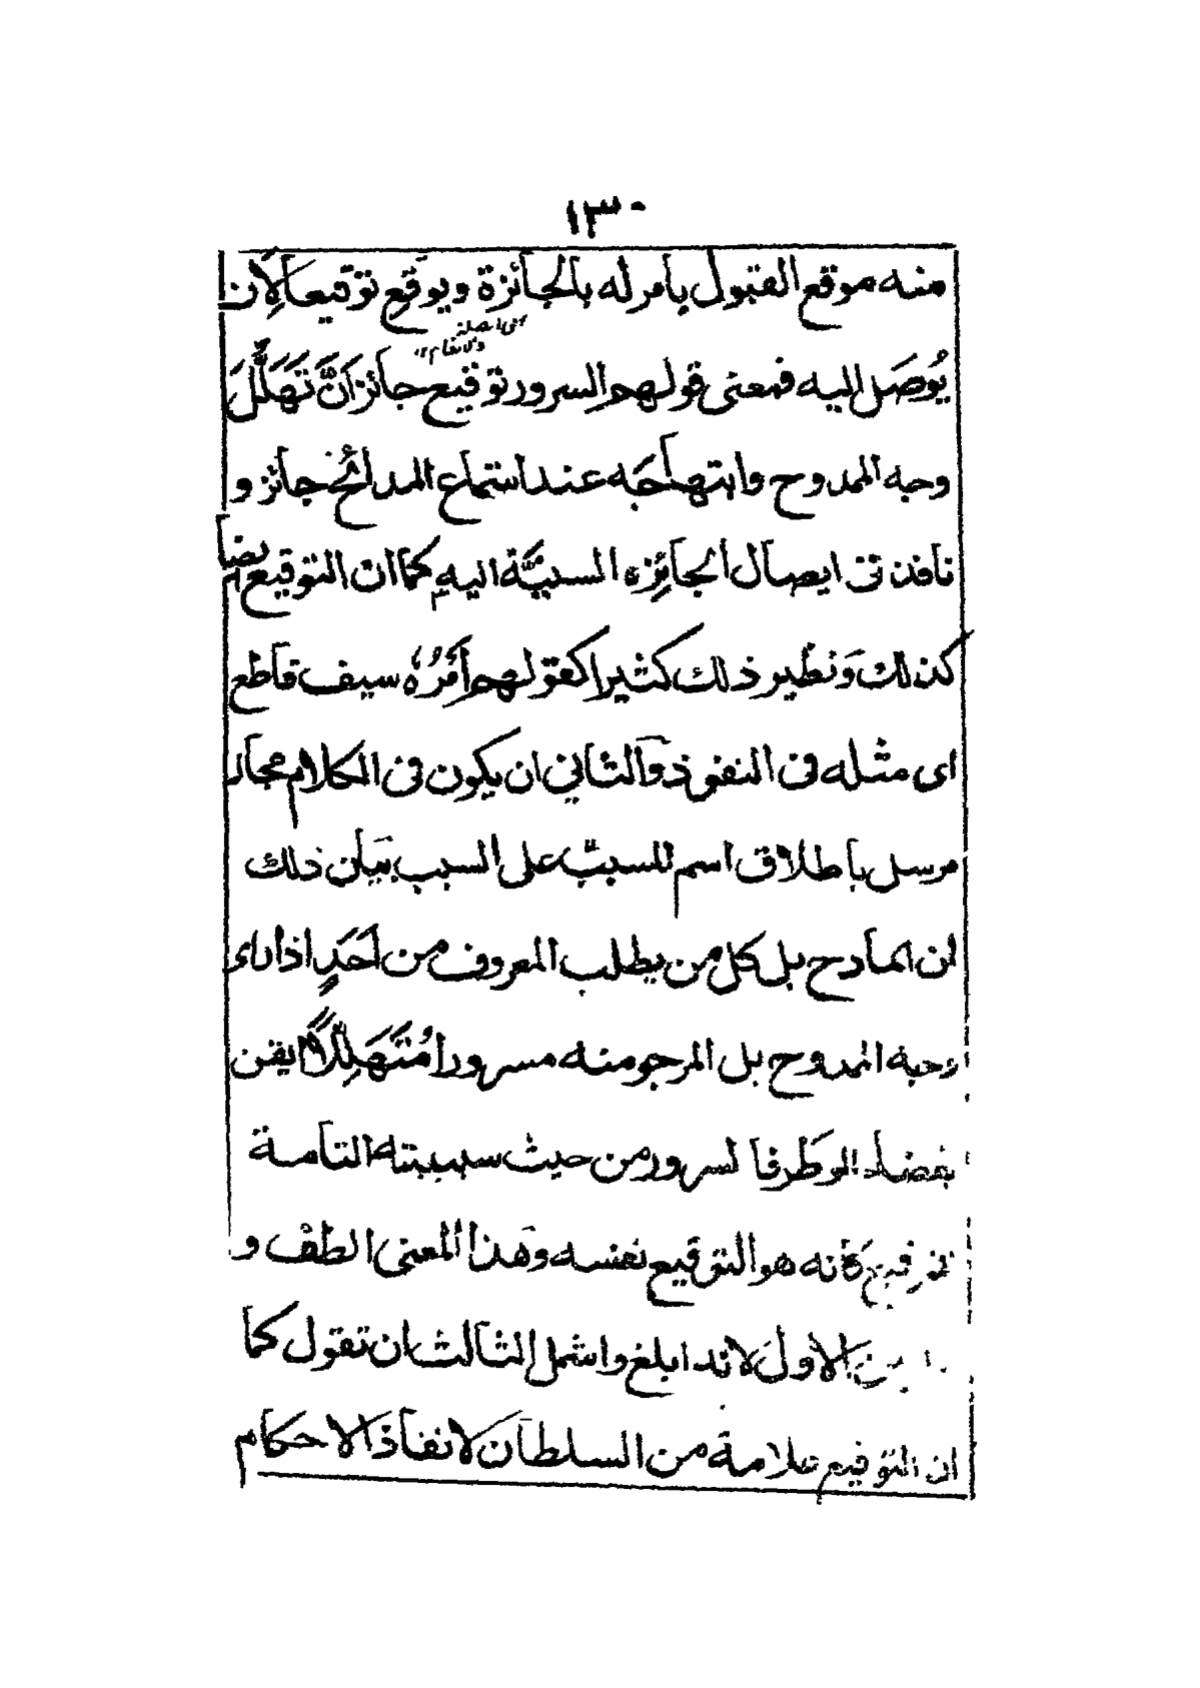 ١٣٠
منه موقع القبول يأمر له بالجائزة ويوقع توقيعا لان
اى الصلة
والانعام ١٢
يُوصَل اليه فمعنى قولهم السرور توقيع جائز انَّ تَهَلُّلَ
وجه الممدوح وابتهاجَه عند استماع المدائح جائز و
نافذ فى ايصال الجائزه السنيَّة اليه كما ان التوقيع ايضا
كذلك وَنظير ذلك كثيرا كقولهم اَمْرُهٗ سيف قاطع
اى مثله فى النفوذ والثاني ان يكون فى الكلام مجاز
مرسل باطلاق اسم المسبب على السبب بيان ذلك
ان المادح بل كل من يطلب المعروف من اَحَدٍ اذا راى
وجه الممدوح بل المرجو منه مسرورا مُتَهَلِّلًا ايقن
بقضاء الوطر فالسرور من حيث سببيته التامة
للتوقيع كانه هو التوقيع نفسه وهذا المعنى الطف و
من الاول لانه ابلغ واشمل الثالث ان تقول كما
ان التوقيع علامة من السلطان لانفاذ الاحكام